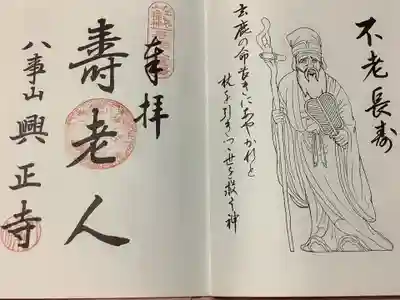 不老長寿
玄鹿の命長きにあやかれと
杖を引きつつ世を救う神
奉拝
壽老人
八事山興正寺